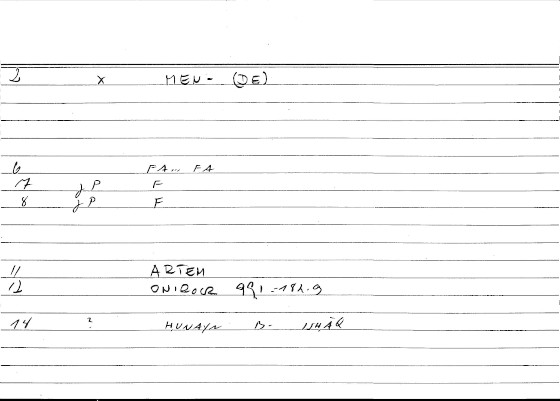 2 x MEN- (DE)
6 FA... FA
7 JP F
8 JP F
11 ARTEM
12 ONIROCR 991-182.9
14 ? HUNAYN B. ISHĀQ